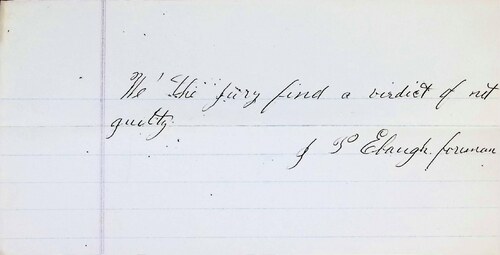 We the jury find a virdict of not
guilty
J S Ebaugh foreman